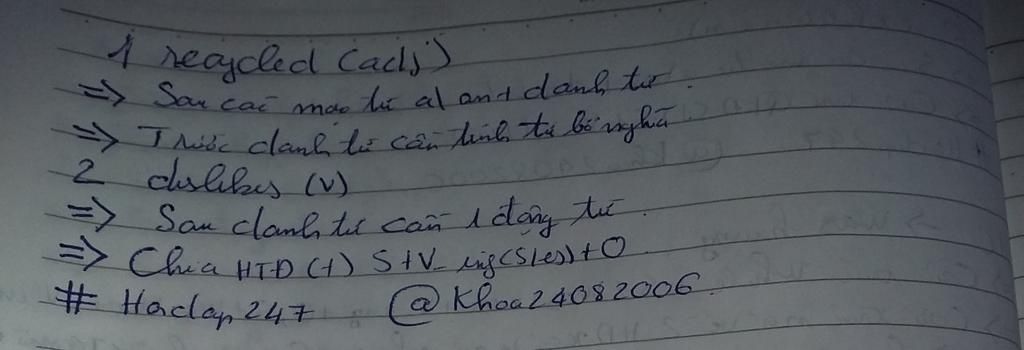 1 recycled (adj)
=> Sau các mạo từ a/an + danh từ.
=> Trước danh từ cần tính từ bổ nghĩa
2 dislikes (v)
=> Sau danh từ cần 1 động từ.
=> Chia HTĐ (+) S+V_ing(s/es)+O
# Hoclap247 @Khoa24082006.